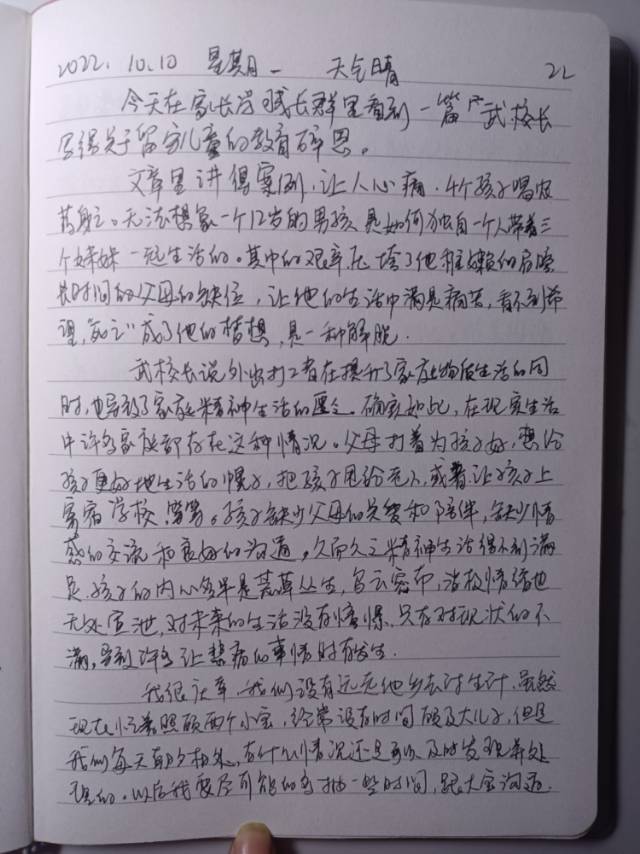 2022.10.10 星期一 天气晴 22
今天在家长学习成长群里看到一篇武校长
写得关于留守儿童的教育碎思。
文章里讲得案例,让人心痛,4个孩子喝农
药身亡。无法想象一个12岁的男孩是如何独自一个人带着三
个妹妹一起生活的。其中的艰辛压垮了他稚嫩的肩膀
长时间的父母的缺位,让他的生活中满是痛苦,看不到希
望,"死亡"成了他的梦想,是一种解脱.
武校长说外出打工者在提升了家庭物质生活的同
时,也导致了家庭精神生活的匮乏。确实如此,在现实生活
中许多家庭都存在这种情况。父母打着为孩子好,想给
孩子更好地生活的幌子,把孩子甩给老人,或者让孩子上
寄宿学校等等。孩子缺少父母的关爱和陪伴,缺少情
感的交流和良好的沟通。久而久之精神生活得不到满
足,孩子的内心多半是荒草丛生,乌云密布,消极情绪也
无处宣泄,对未来的生活没有憧憬,只有对现状的不
满,导致许多让悲痛的事情时有发生.
我很庆幸,我们没有远走他乡去讨生计,虽然
现在忙着照顾两个小宝,经常没有时间顾及大儿子,但是
我们每天朝夕相处,有什么情况还是可以及时发现并处
理的。以后我要尽可能的多抽一些时间,跟大宝沟通.